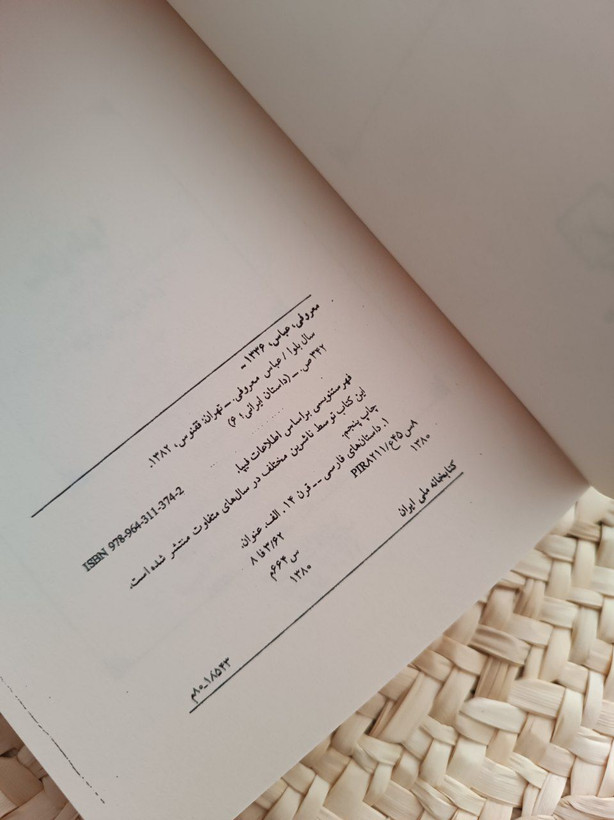 معروفی، عباس، ۱۳۳۶ ـ
سال بلوا / عباس معروفی. ـ تهران: ققنوس، ۱۳۸۲.
۳۴۲ ص. ـ (داستان ایرانی؛ ۶)
ISBN 978-964-311-374-2
فهرستنویسی براساس اطلاعات فیپا.
این کتاب توسط ناشرین مختلف در سال‌های متفاوت منتشر شده است.
چاپ پنجم.
۱. داستان‌های فارسی ـ ـ قرن ۱۴. الف. عنوان.
۸س۴۵ع/PIR۸۲۱۱ ۸فا۳/۶۲
۱۳۸۰ س۶۶۴م
۱۳۸۰
کتابخانه ملی ایران ۱۸۵۴۳ـ۸۰م